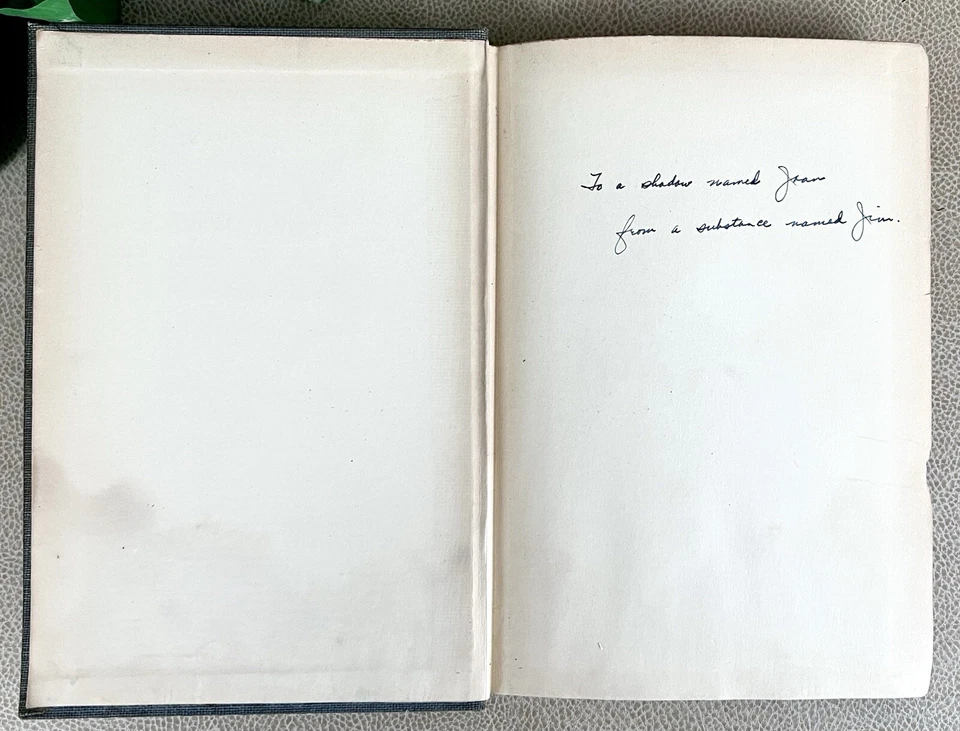 To a shadow named Joan
from a substance named Jim.